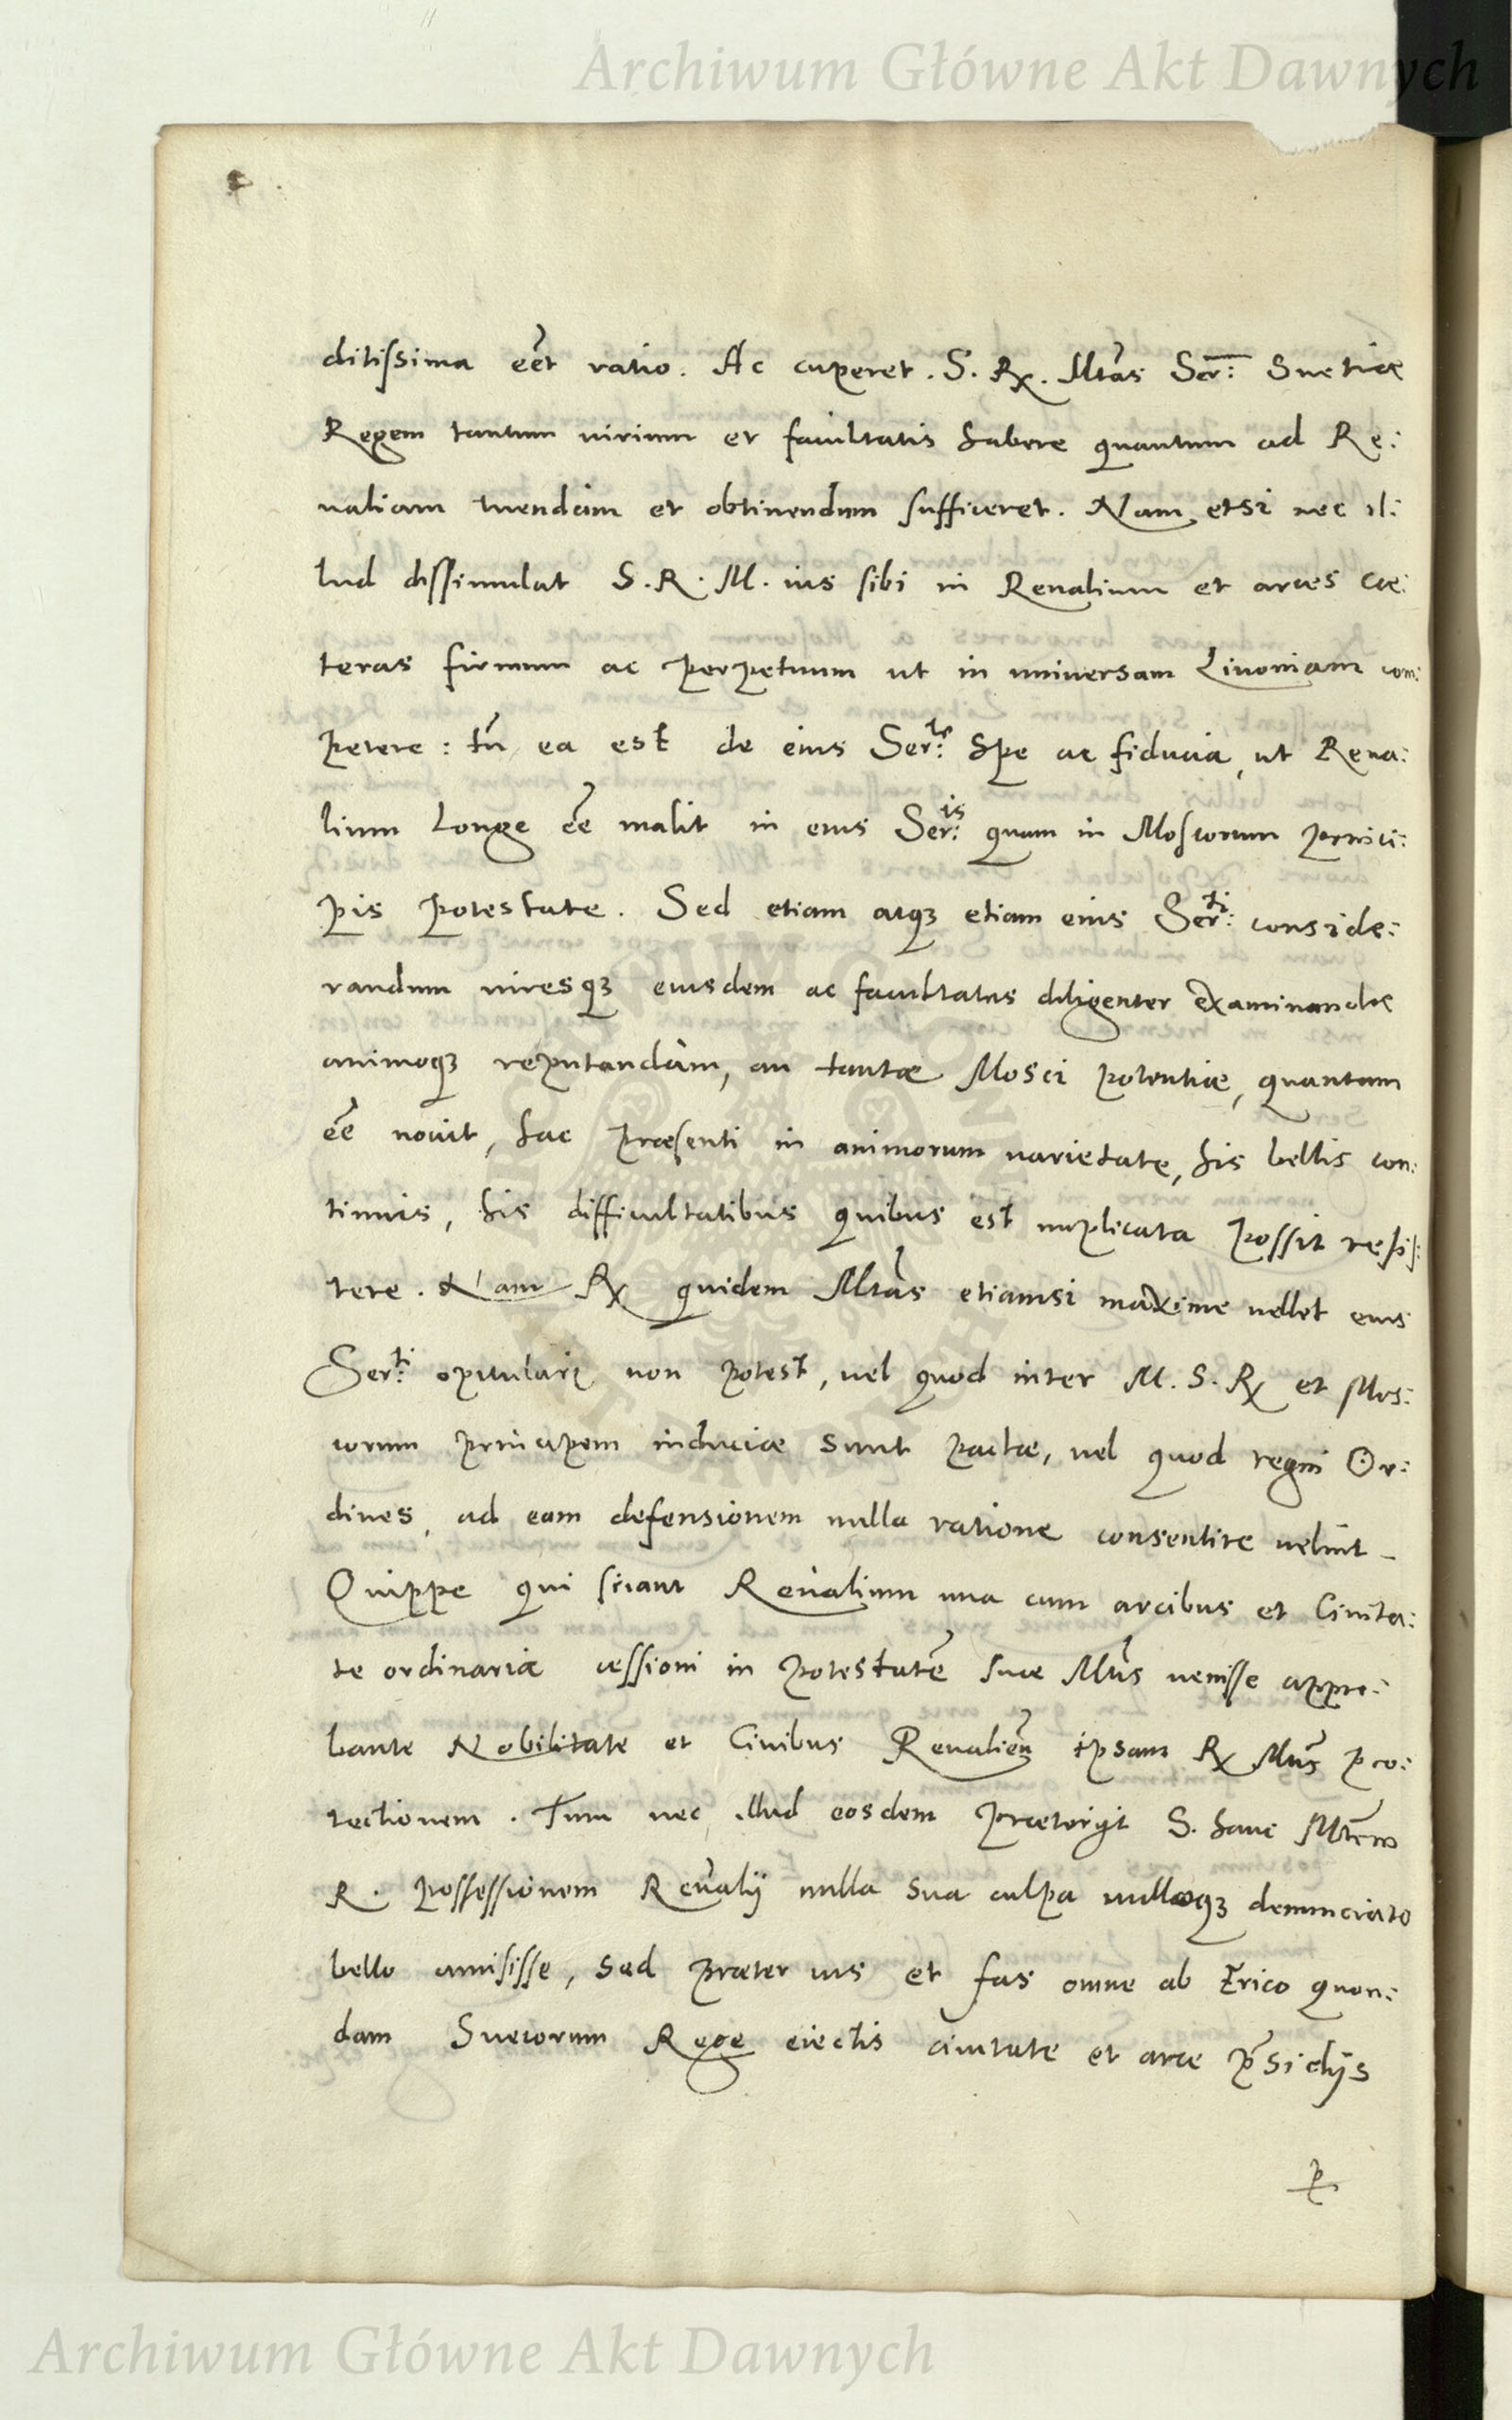 Archiwum Główne Akt Dawnych
ditissima eēt ratio. Ac cuperet. S. Rx. Mtās Ser: Suetiae
Regem tantum virium et facultatis habere quantum ad Re:
valiam tuendam et obtinendum sufficeret. Nam etsi nec il:
lud dissimulat S. R. M. ius sibi in Revalium et arces cæ:
teras firmum ac perpetuum ut in universam Livoniam com:
petere: tn̄ ea est de eius Ser:te spe ac fiducia, ut Reva:
lium longe eē malit in eius Ser:is quam in Moscorum princi:
pis potestate. Sed etiam atqȝ etiam eius Ser:ti conside:
randum viresqȝ eiusdem ac facultates diligenter examinandæ
animoqȝ reputandam, an tantæ Mosci potentiæ, quantam
eē novit, hac præsenti in animorum varietate, his bellis con:
tinuis, his difficultatibus quibus est implicata possit resis:
tere. Nam Rx quidem Mtās etiamsi maxime vellet eius
Ser:ti opitulari non potest, vel quod inter M. S. Rx et Mos:
corum principem induciæ sunt pactæ, vel quod regni Or:
dines, ad eam defensionem nulla ratione consentire velint
Quippe qui sciant Revalium una cum arcibus et Civita:
te ordinaria cessioni in potestatē suæ Mtis venisse appro:
bante Nobilitate et Civibus Revalien̄ ipsam Rx Mtis pro:
tectionem. Tum nec illud eosdem præterijt S. hanc Mtem
R. possessionem Revalij nulla sua culpa nulloqȝ denunciato
bello amisisse, sed præter ius et fas omne ab Erico quon:
dam Suecorum Rege eiectis civitate et arce p̄sidijs
Archiwum Główne Akt Dawnych